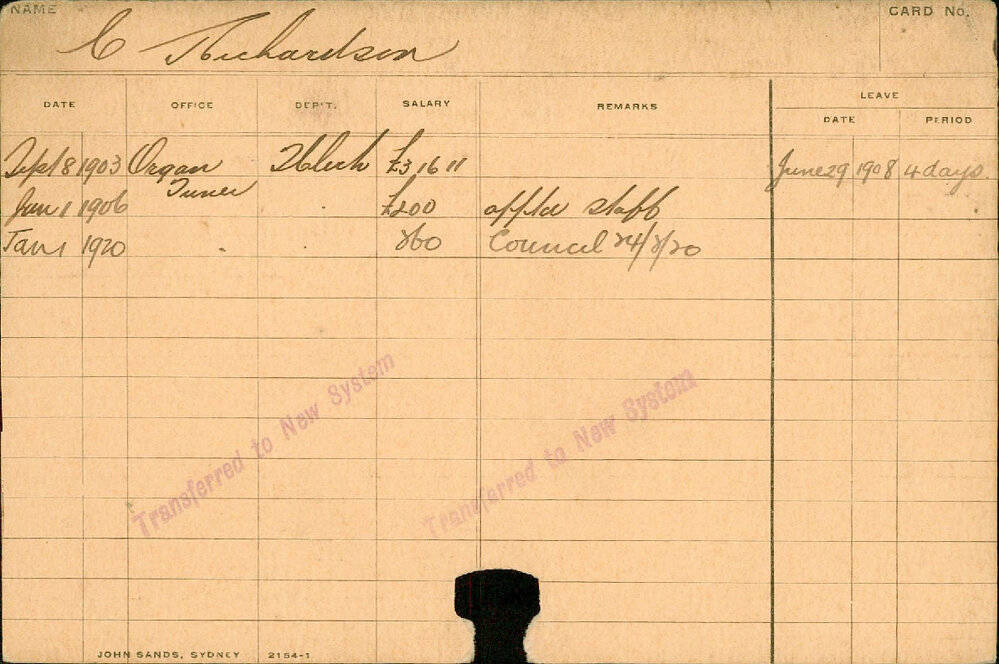 NAME
CARD No.
C Richardson
DATE OFFICE DEP'T. SALARY REMARKS LEAVE
DATE PERIOD
Sept 8 1903 Organ £3 16 11 June 29 1908 4 days
Tuner
Jan 1 1906 £200 apptd staff
Jan 1 1920 260 Council 24/2/20
Transferred to New System
Transferred to New System
JOHN SANDS, SYDNEY 2154-1